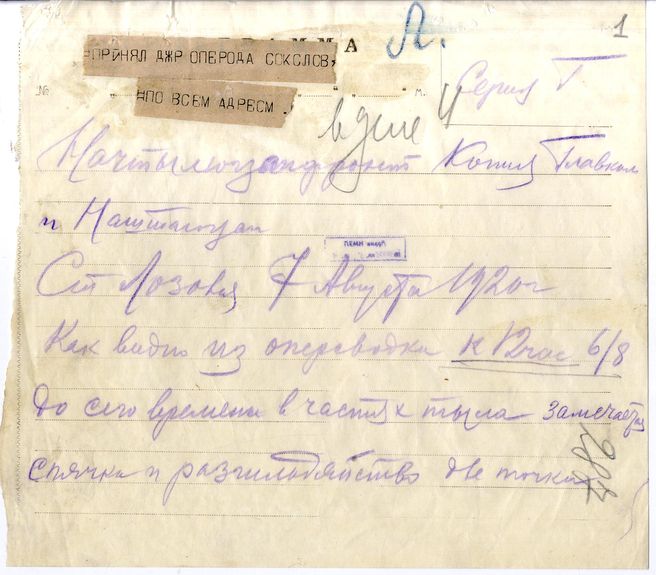 А. 1
ПРИНЯЛ ДЖР ОПЕРОДА СОКОЛОВ
№ " " " м.
Серия Г
ПО ВСЕМ АДРЕСМ
в деле
Начтылюгзапфронт Копия Главком
и Наштаюгзап
Ст Лозовая 7 Августа 1920г
Как видно из оперсводки к 12 час 6/8
до сего времени в частях тыла замечается
спячка и разгильдяйство две точки